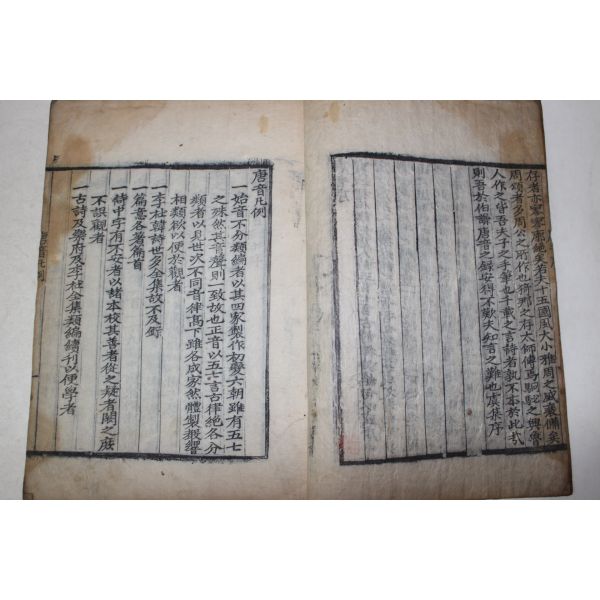 存者亦寥寥廉絕矣若夫十五國風大小雅周之盛衰備矣
周頌者多周公之所作也猗那之存太師傳焉駉駜之興魯
人作之皆吾夫子之手筆也千載之言詩者孰不本於此哉
則吾於伯謙唐音之錄安得不歎夫知言之難也虞集序
唐音凡例
一始音不分類編者以其四家製作初變六朝雖有五七
之殊然其音聲則一致故也正音以五七言古律絕各分
類者以見世次不同音律高下雖各成家然體製聲響
相類欲以便於觀者
一李杜韓詩世多全集故不及錄
一篇意各著篇首
一詩中字有不安者以諸本校其善者從之疑者闕之庶
不誤觀者
一古詩及樂府及李杜全集類編續刊以便學者